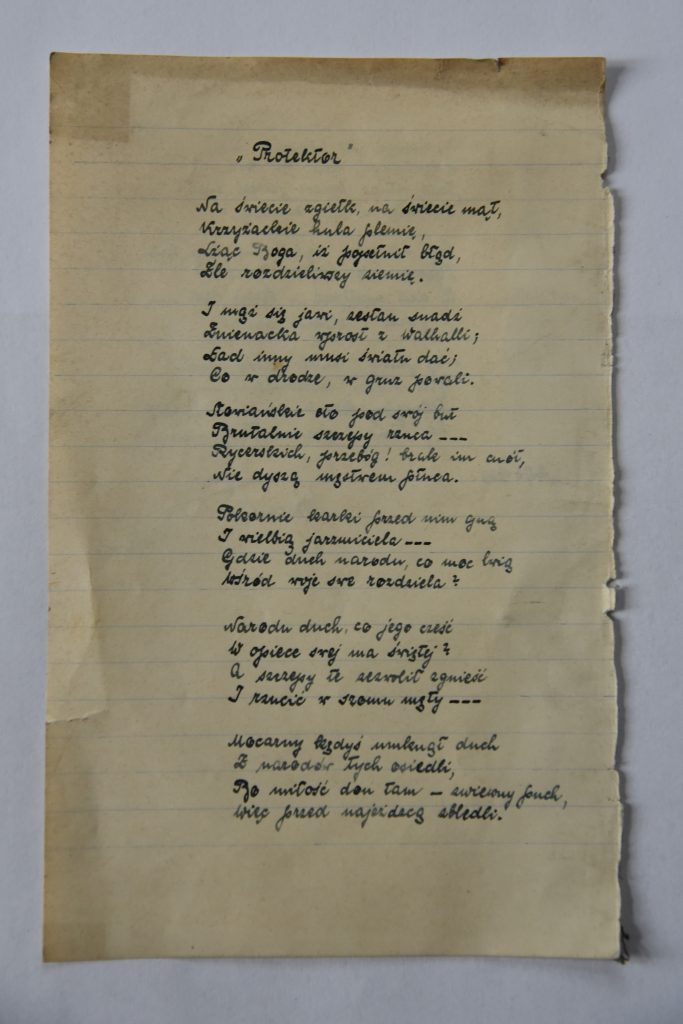 „Protektor"
Na świecie zgiełk, na świecie mąt,
Krzyżackie hula plemię,
Lżąc Boga, iż popełnił błąd,
Źle rozdzieliwszy ziemię.
I mąż się jawi, zesłan snadź
Znienacka wprost z Walhalli;
Ład inny musi światu dać;
Co w drodze, w gruz powali.
Słowiańskie oto pod swój but
Brutalnie szczepy rzuca ---
Rycerskich, przebóg! brak im cnót,
Nie dyszą męstwem płuca.
Pokornie karki przed nim gną
I wielbią jarzmiciela ---
Gdzie duch narodu, co moc lwią
Wśród woje swe rozdziela?
Narodu duch, co jego cześć
W opiece swej ma świętej?
A szczepy te zezwolił zgnieść
I rzucić w szpony męty ---
Mocarny kędyś umknął duch
Z narodów tych osiedli,
Bo miłość doń tam – zwiewny puch,
Więc przed najeźdzcą zbledli.